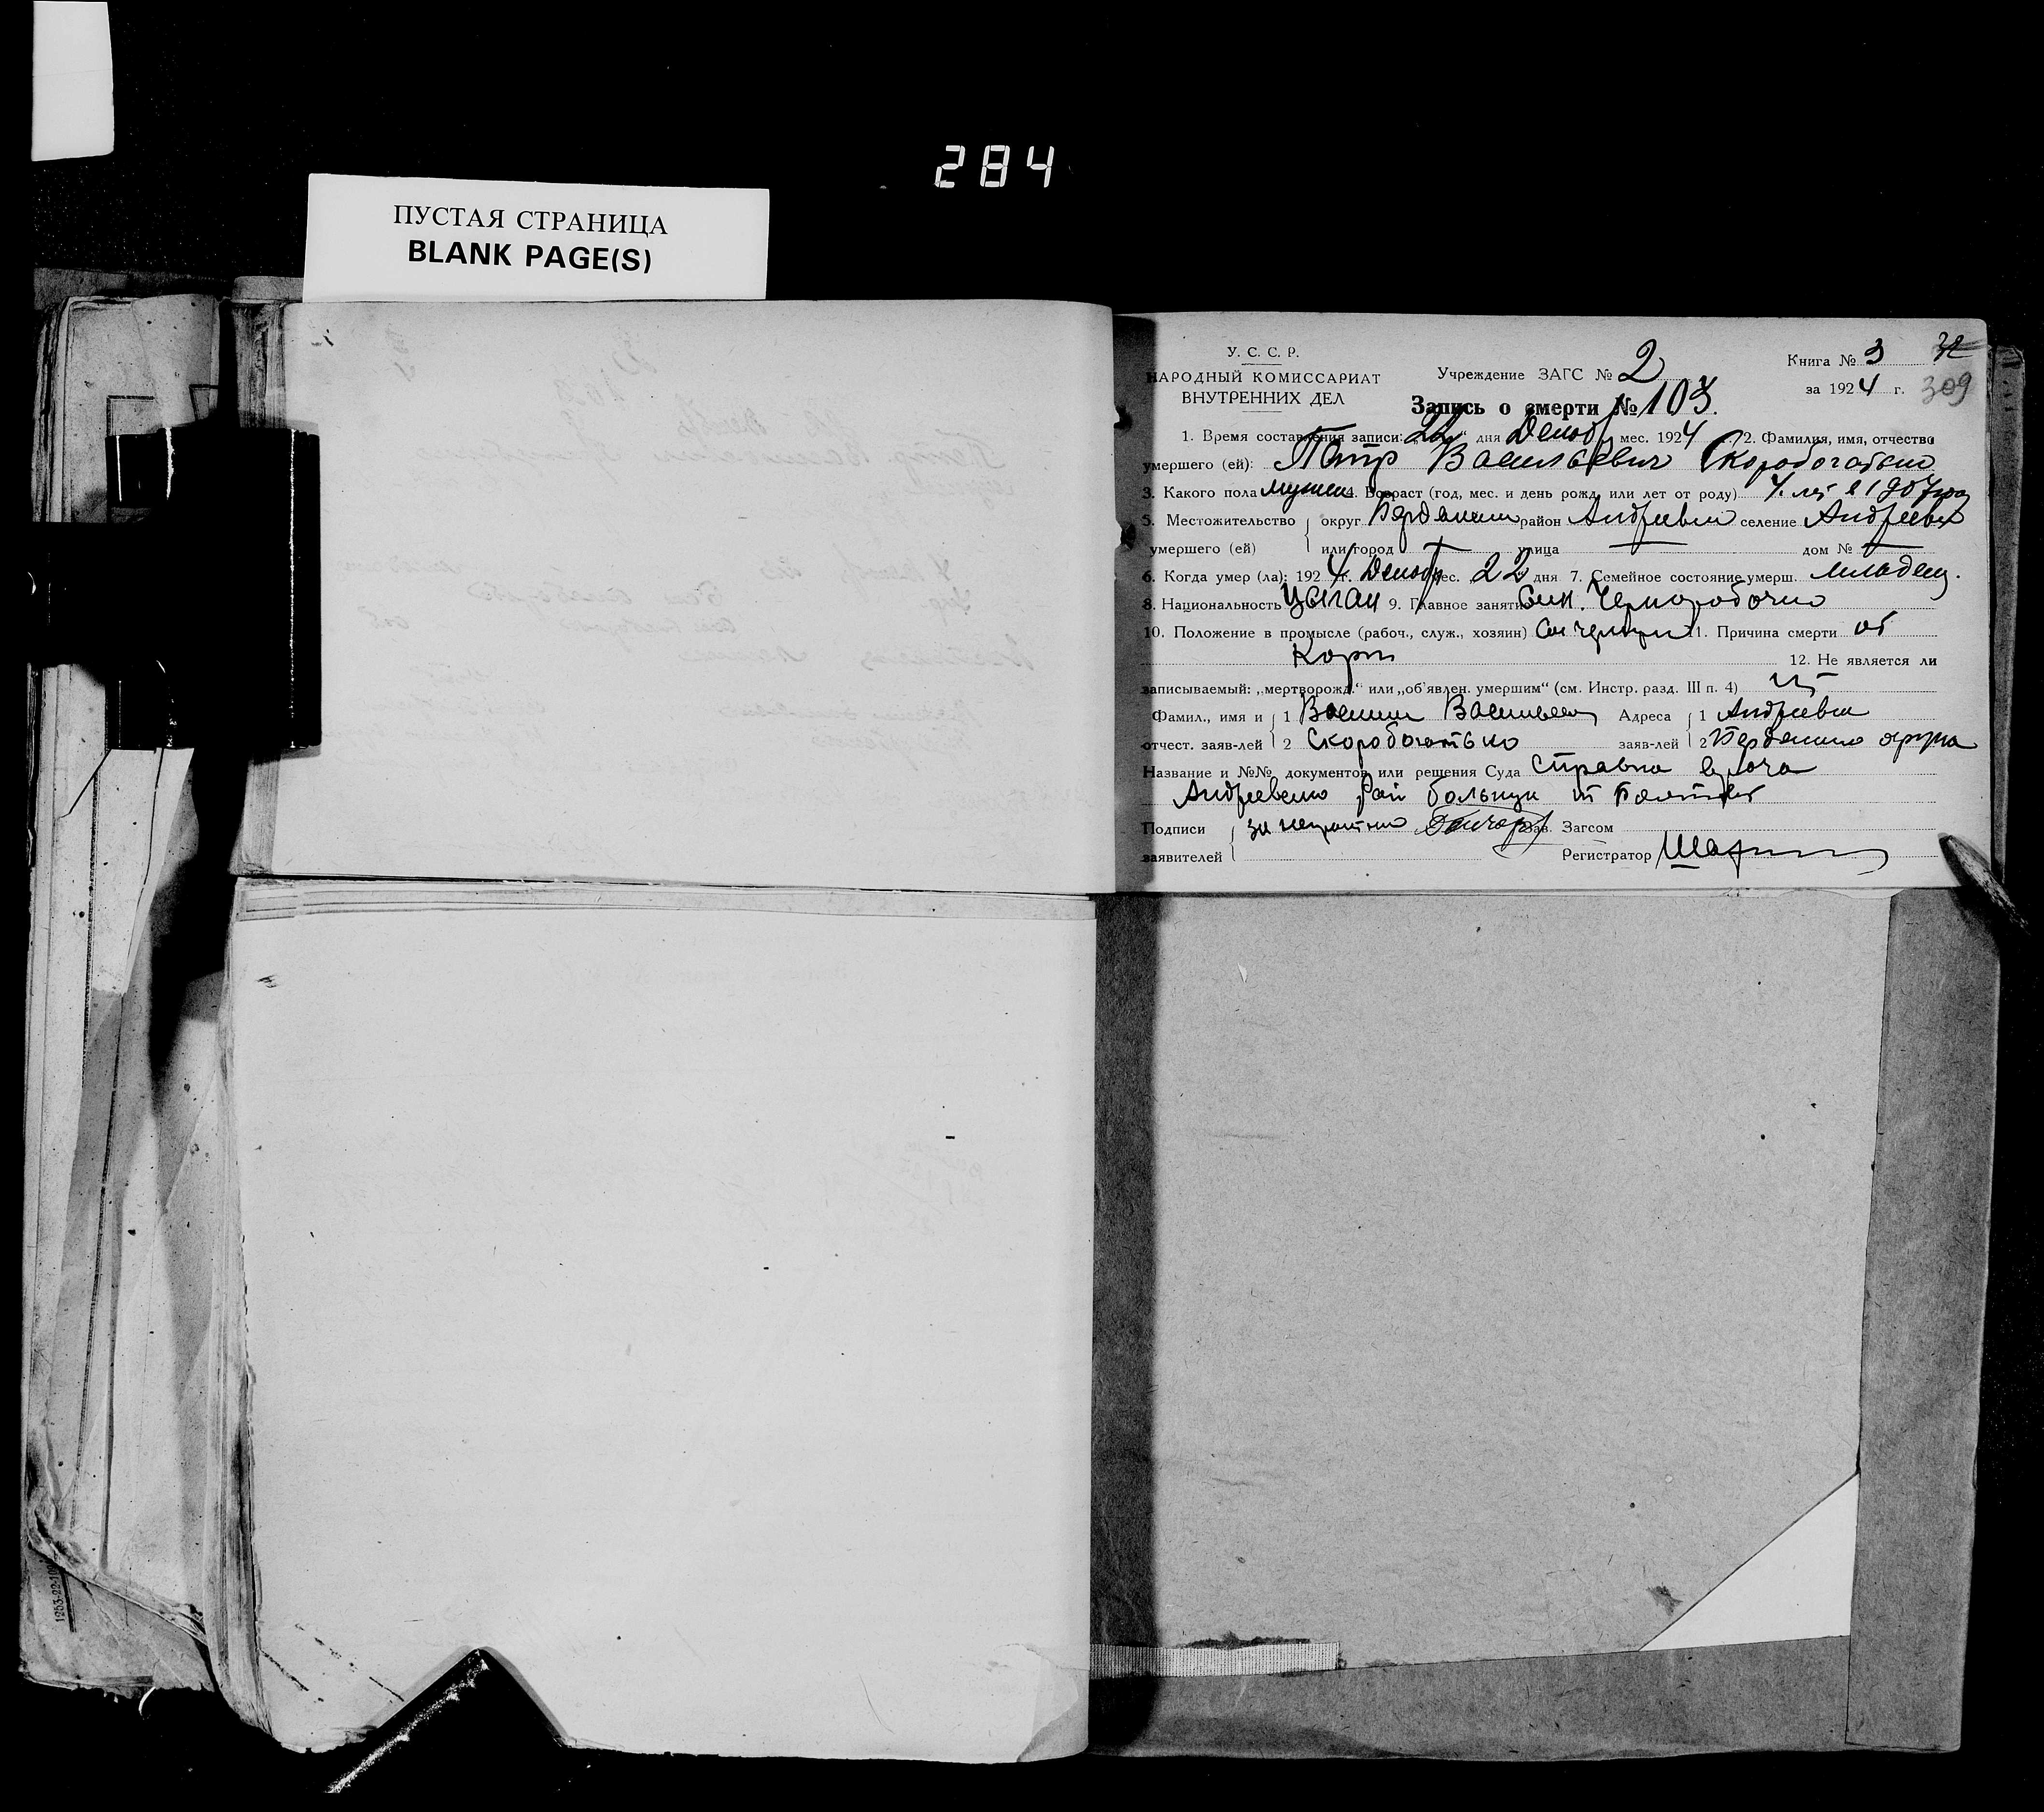 284
ПУСТАЯ СТРАНИЦА
BLANK PAGE(S)
У. С. С. Р.
НАРОДНЫЙ КОМИССАРИАТ
ВНУТРЕННИХ ДЕЛ
Учреждение ЗАГС № 2
Запись о смерти № 103.
Книга № 3
за 1924 г. 309
1. Время составления записи: „22“ дня Декабр мес. 1924 2. Фамилия, имя, отчество
умершего (ей): Петр Васильевич Скоробогатько
3. Какого пола мужск 4. Возраст (год, мес. и день рожд. или лет от роду)
5. Местожительство округ Бердянский район Андреевский селение Андреевка
умершего (ей) или город — улица — дом № —
6. Когда умер (ла): 1924 г. Декабр мес. 22 дня 7. Семейное состояние умерш. младенц.
8. Национальность Цыган 9. Главное занятие Сын. Чернорабочего
10. Положение в промысле (рабоч., служ., хозяин) Сын 11. Причина смерти от
Кори
12. Не является ли
записываемый: „мертворожд.“ или „об'явлен. умершим“ (см. Инстр. разд. III п. 4) нет
Фамил., имя и 1 Василий Васильевич Адреса 1 Андреевка
отчест. заяв-лей 2 Скоробогатько заяв-лей 2 Бердянского округа
Название и №№ документов или решения Суда Справка врача
Андреевской Рай больницы
Подписи за неграмотного Зав. Загсом
заявителей Регистратор
1253-22-10